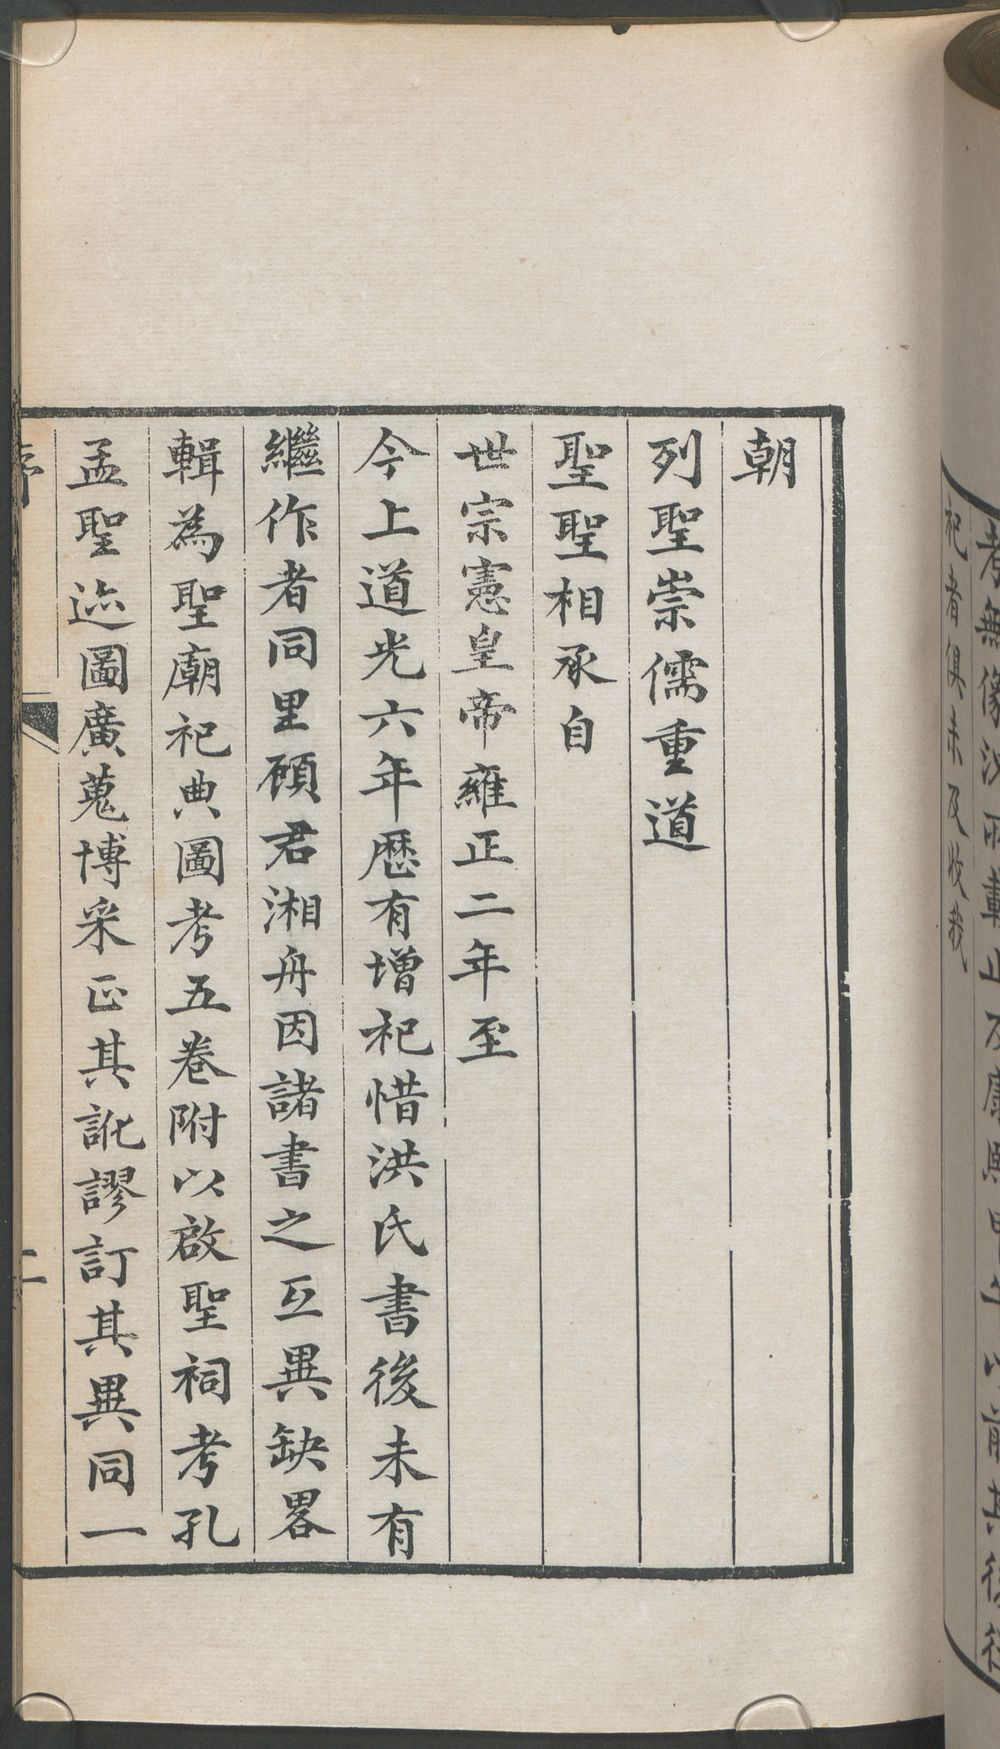 朝
列聖崇儒重道
聖聖相承自
世宗憲皇帝雍正二年至
今上道光六年歷有增祀惜洪氏書後未有
繼作者同里顧君湘舟因諸書之互異缺畧
輯為聖廟祀典圖考五卷附以啟聖祠考孔
孟聖迹圖廣蒐博采正其訛謬訂其異同一
序
二
祀者俱未及收我